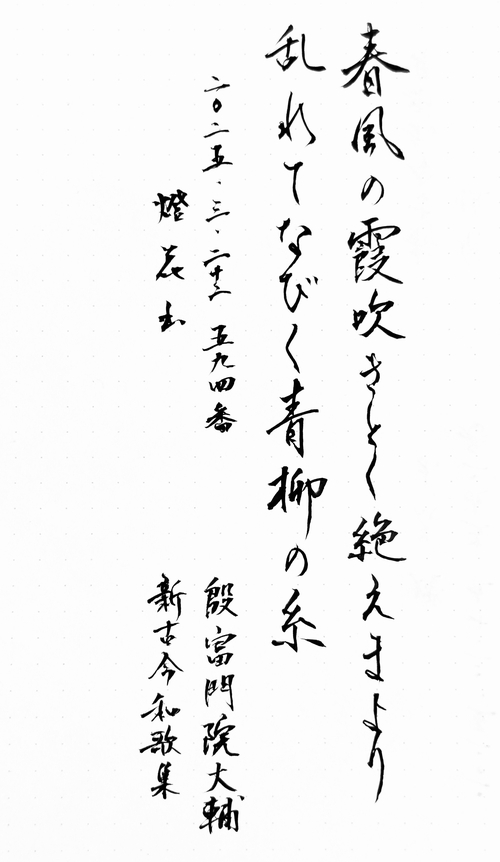 春風の霞吹きとく絶えまより
乱れてなびく青柳の糸
二〇二五.三.二十二 五九四番
殷富門院大輔
新古今和歌集